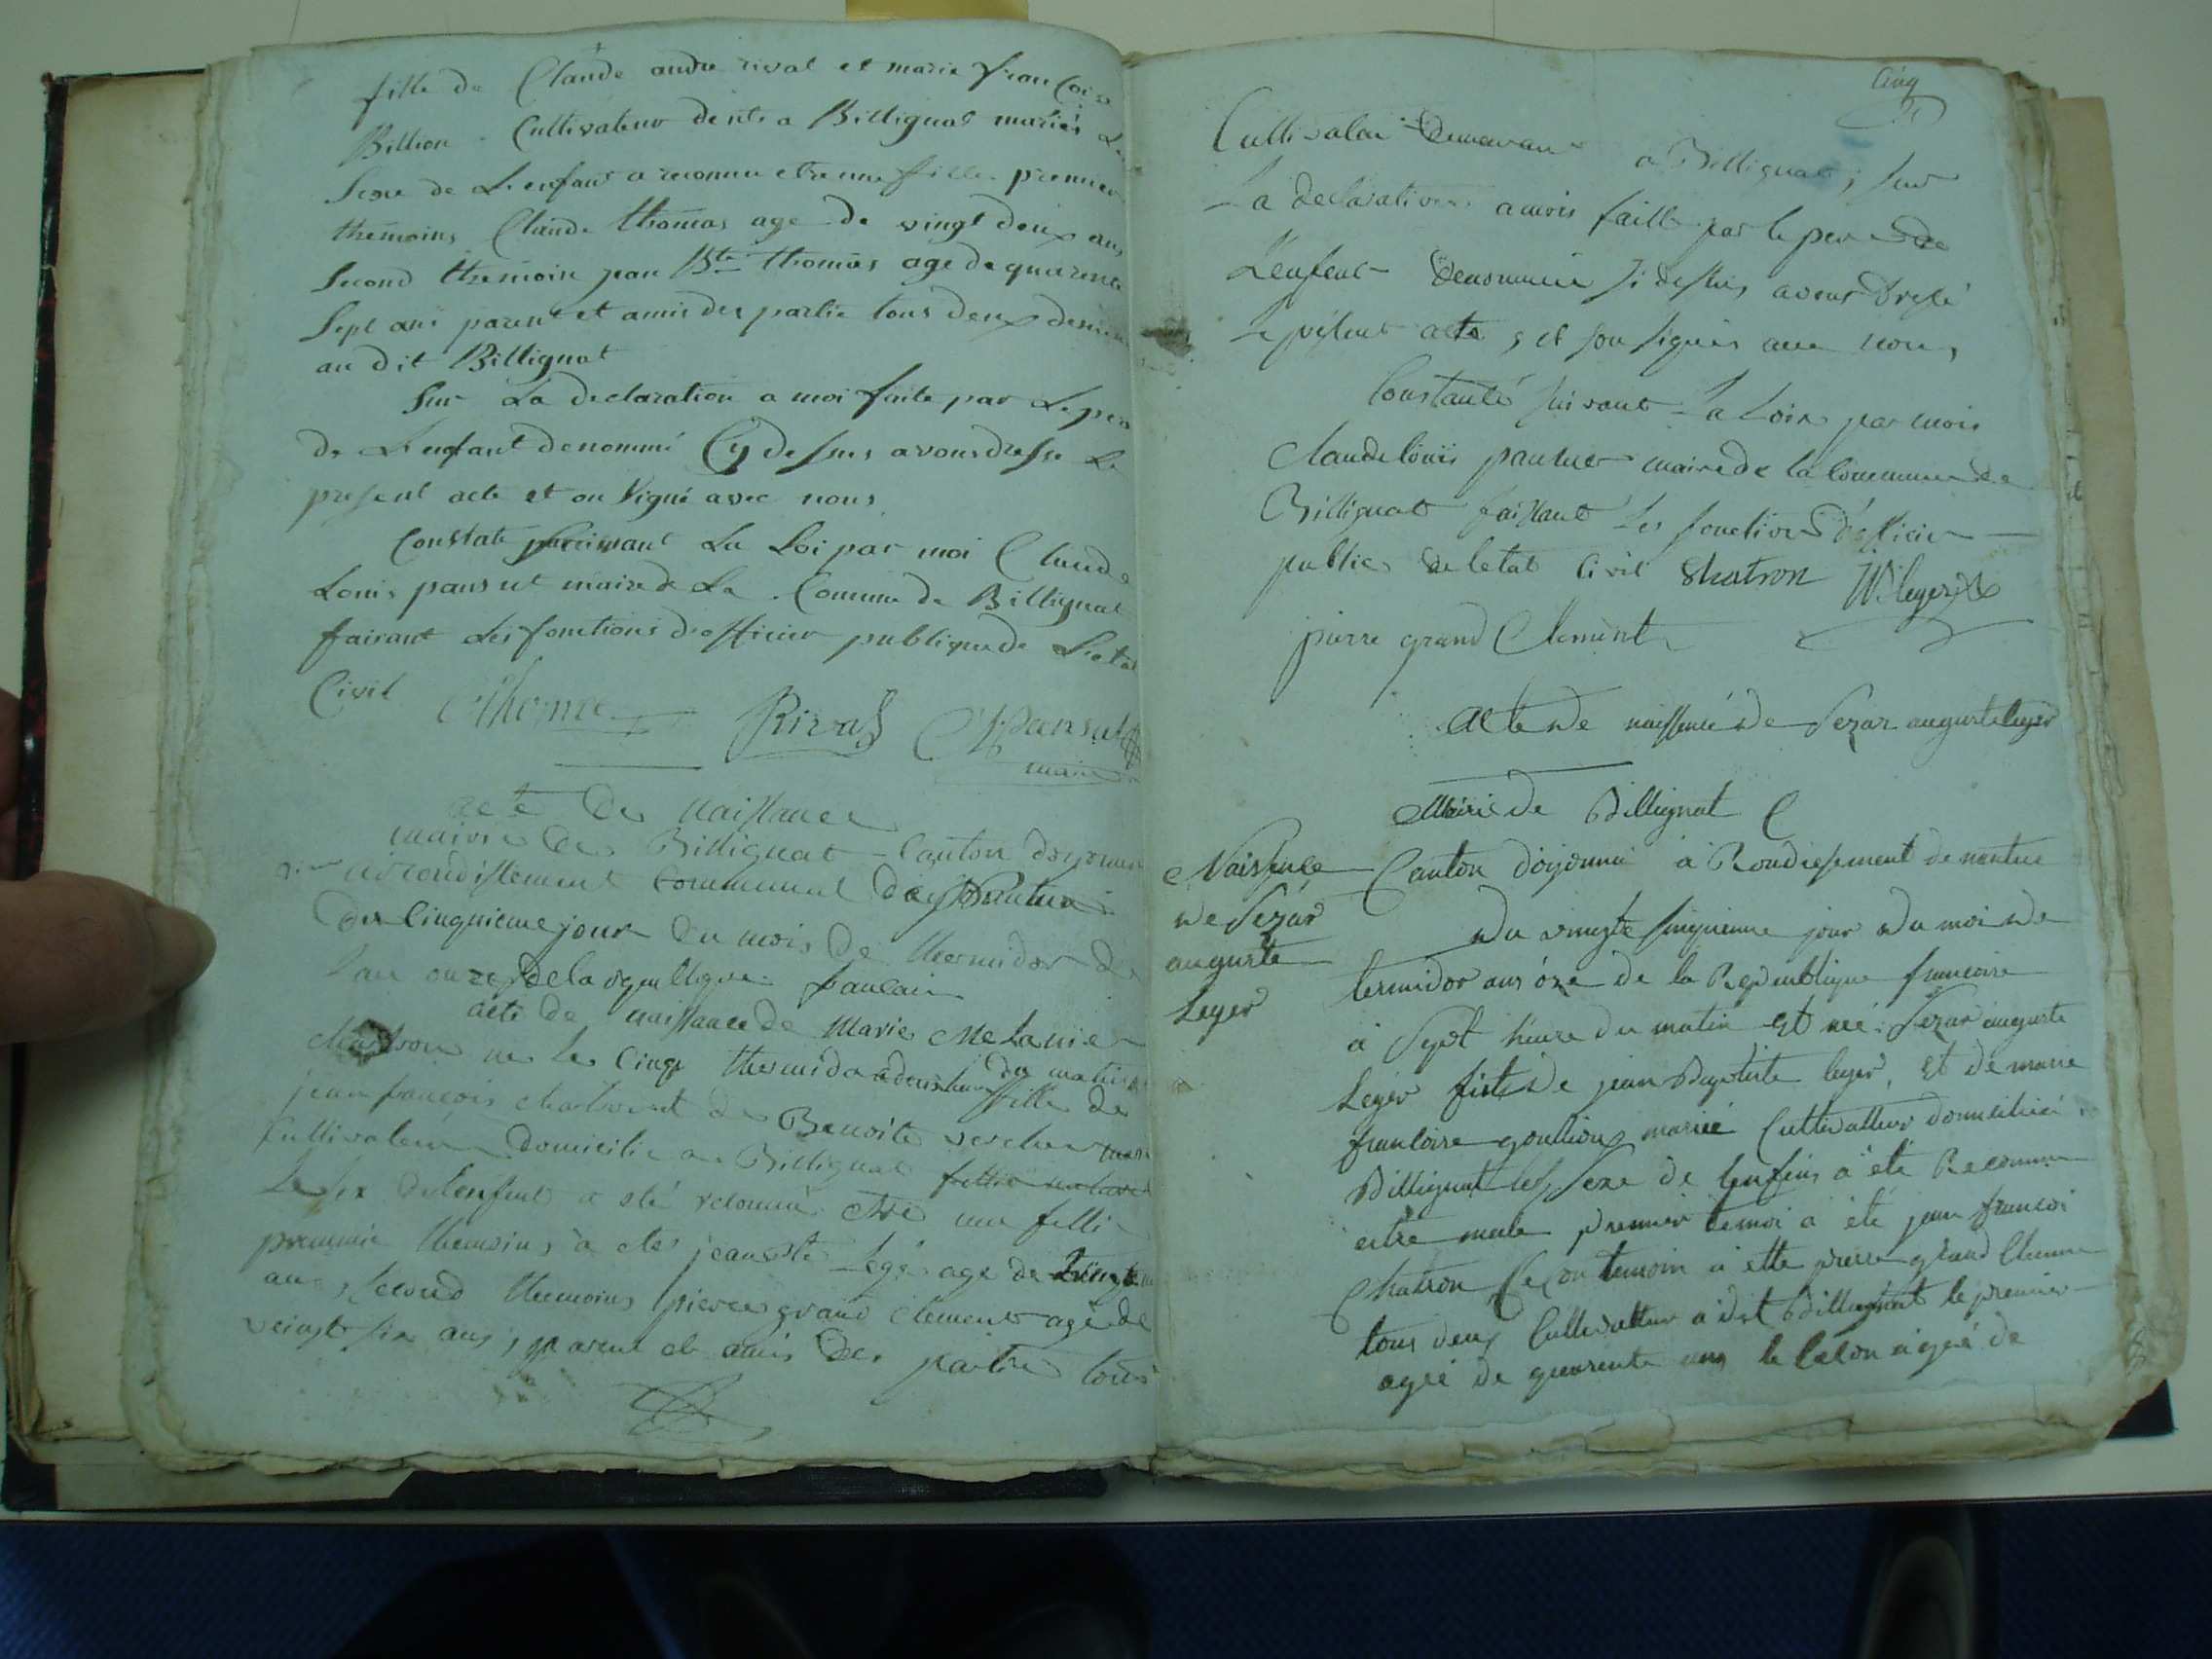 fille de Claude andre rival et marie francoise
Billion . Cultivateur dents a Billignat mariés Le
Sexe de L'enfant a reconnu etre une fille premier
themoins Claude thomas age de vingt deux ans
Second themoin jean Bte thomas age de quarente
Sept ans parent et amis des partie tous deux
au dit Billignat
Sur La declaration a moi faite par Le pere
de L'enfant denommé Cy dessus avons dresse Le
present acte et on Signé avec nous
Constate suivant La Loi par moi Claude
Louis pansut maire de La Comune de Billignat
faisant Les fonctions d'officier publique de L'etat
Civil Thome Rival Pansut
maire
acte De Naissance
mairie de Billignat Canton doyonna
arrondissement Communal de Nantua
Du Cinquieme jour du mois de thermidor de
l'an onze de la republique francais
acte de naissance de Marie Melanie
Chatron ne le Cinq thermidor a deux heure du matin fille de
jean françois chatron et de Benoite vercher
Cultivateur domicilie a Billignat
Le sex de l'enfant a été reconnu Etre une fille
premmie themoins a eté jean Bte Leger age de
ans, second themoins pierre grand clement agé de
veingt six ans, parent et amis des partie tous
Cinq
Cultivateur Demeurant a Billignat ; sur
La declaration a mois faitte par le pere de
L'enfent denommée si dessus avons dressé
Le present acte , et son signés avec nous
Constanté suivant La Loix par mois
Claude louis pansut maire de la Commune de
Billignat faissant Les fonctions d'officier
public de l'etat Civil Chatron Leger
pierre grand Clement
Acte de naissence de Sezar auguste leger
Mairie de Billignat
Naissence
de Sezar
auguste
Leger
Canton d'oyonna a Rondissement de nantua
Du vingte sinquieme jour du moi de
termidor ans onze de la Republique francaise
a Sept heure du matin est né Sezar auguste
Leger fils de jean Baptiste leger, et de marie
francoise goullioux marié Cultivatteur domicilié
Billignat le Sexe de lenfens a été Reconnu
estre male premier temoi a été jean francoi
Chatron Secon temoin a ette pierre grand Clemen
tous deux Cultivatteur a dit Billignat le premier
agé de quarente ans le Secon agé de